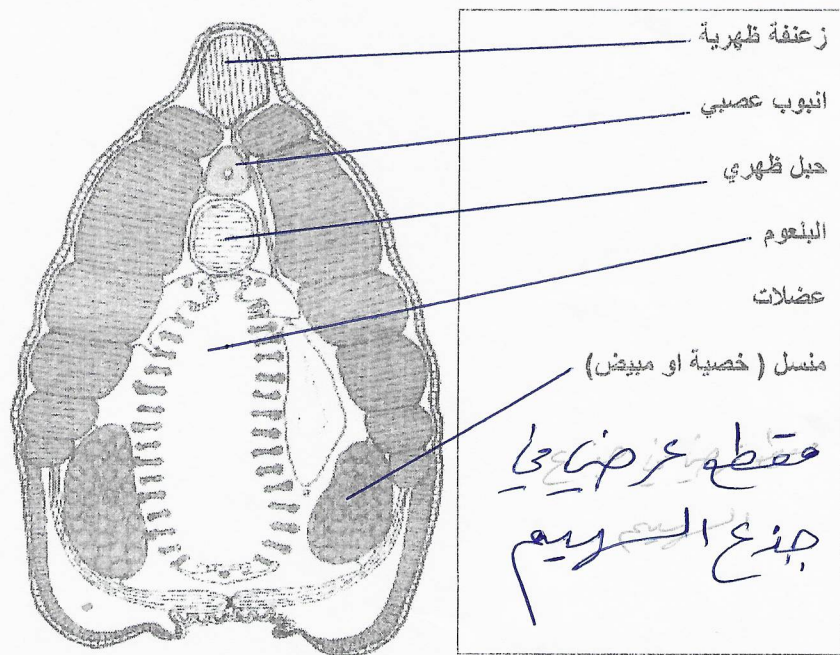 زعنفة ظهرية
انبوب عصبي
حبل ظهري
البلعوم
عضلات
منسل ( خصية او مبيض)
مقطع عرضي في
جذع السهيم